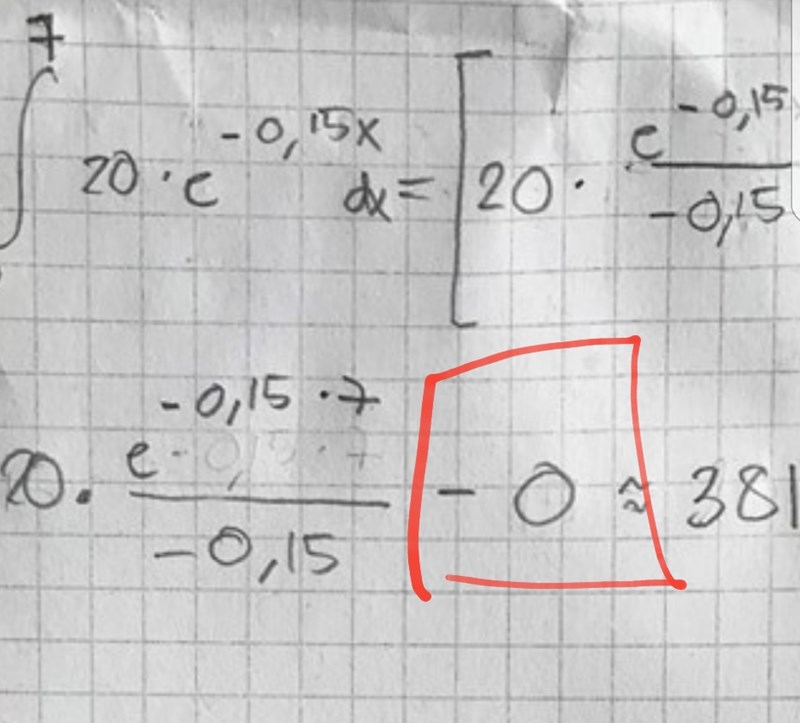 7
∫ 20 · e^{-0,15x} dx = [ 20 · e^{-0,15} / -0,15
20 · e^{-0,15 · 7} / -0,15 - 0 ≈ 381